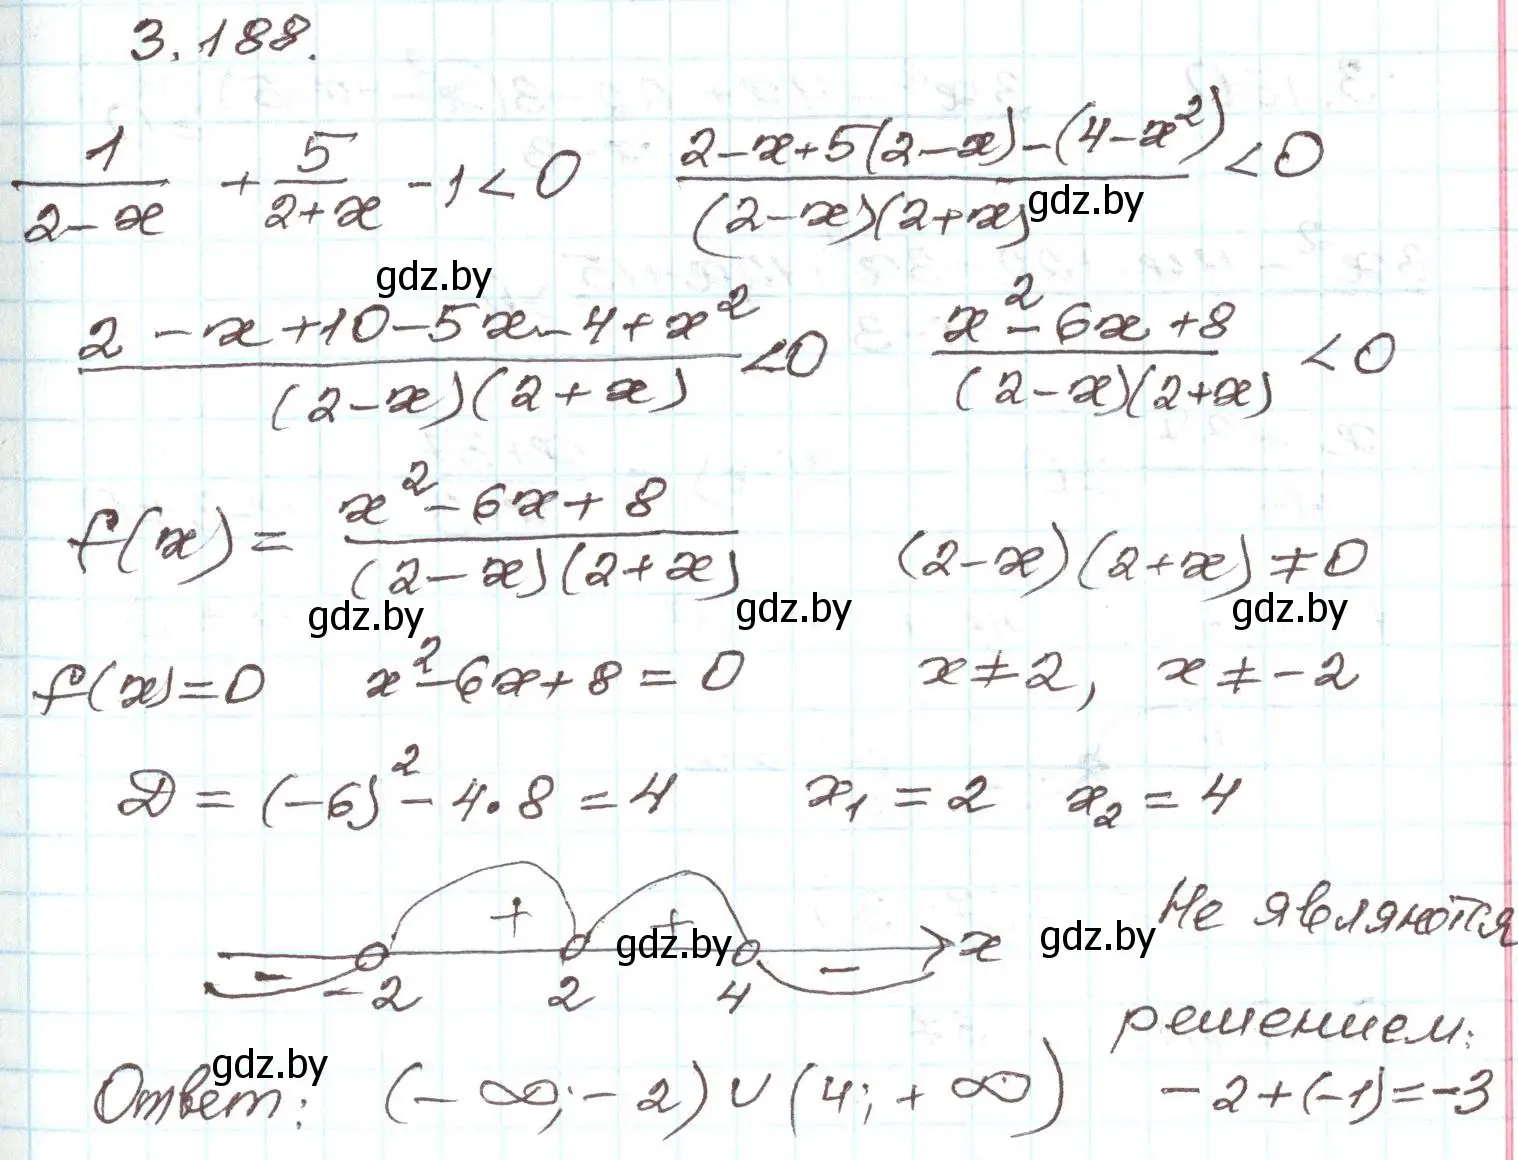 3.188.
1/(2-x) + 5/(2+x) - 1 < 0    (2-x+5(2-x)-(4-x²))/((2-x)(2+x)) < 0
gdz.by
gdz.by
(2-x+10-5x-4+x²)/((2-x)(2+x)) < 0    (x²-6x+8)/((2-x)(2+x)) < 0
f(x) = (x²-6x+8)/((2-x)(2+x))    (2-x)(2+x) ≠ 0
gdz.by gdz.by gdz.by
f(x)=0    x²-6x+8=0    x≠2, x≠-2
D = (-6)² - 4·8 = 4    x₁ = 2    x₂ = 4
+ + gdz.by x gdz.by Не являются
- -2 2 4 -
решением:
gdz.by
Ответ: (-∞;-2)∪(4;+∞)    -2+(-1)=-3